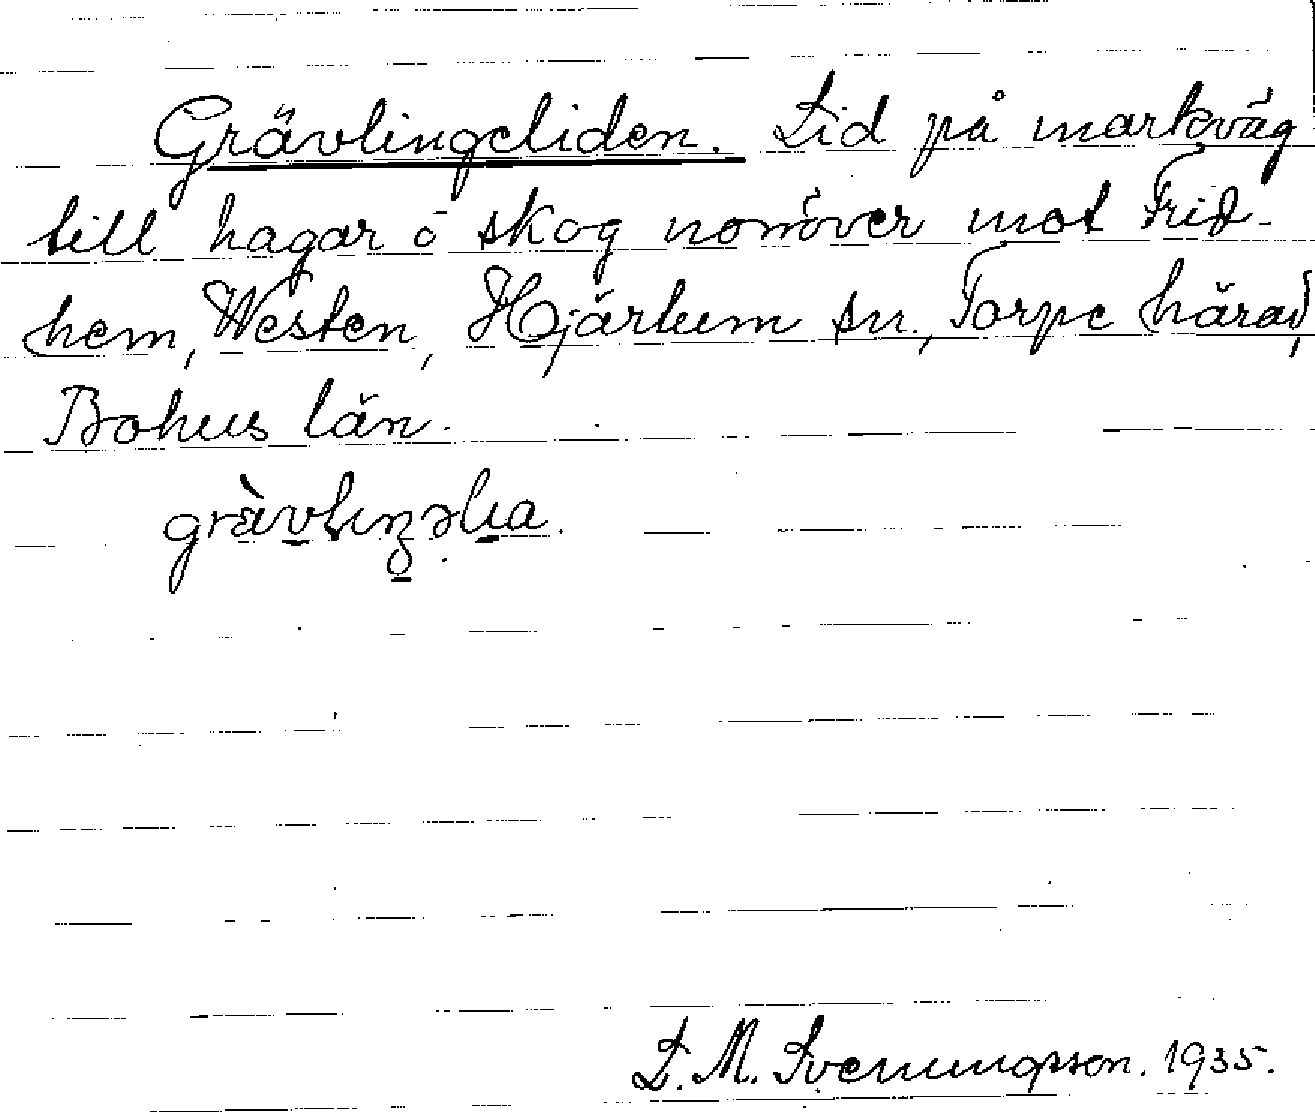 Grävlingeliden. Lid på markväg
till hagar ö skog norröver mot Frid-
hem, Westen, Hjärtum sn., Torpe härad,
Bohus län.
L. M. Svenungsson. 1935.